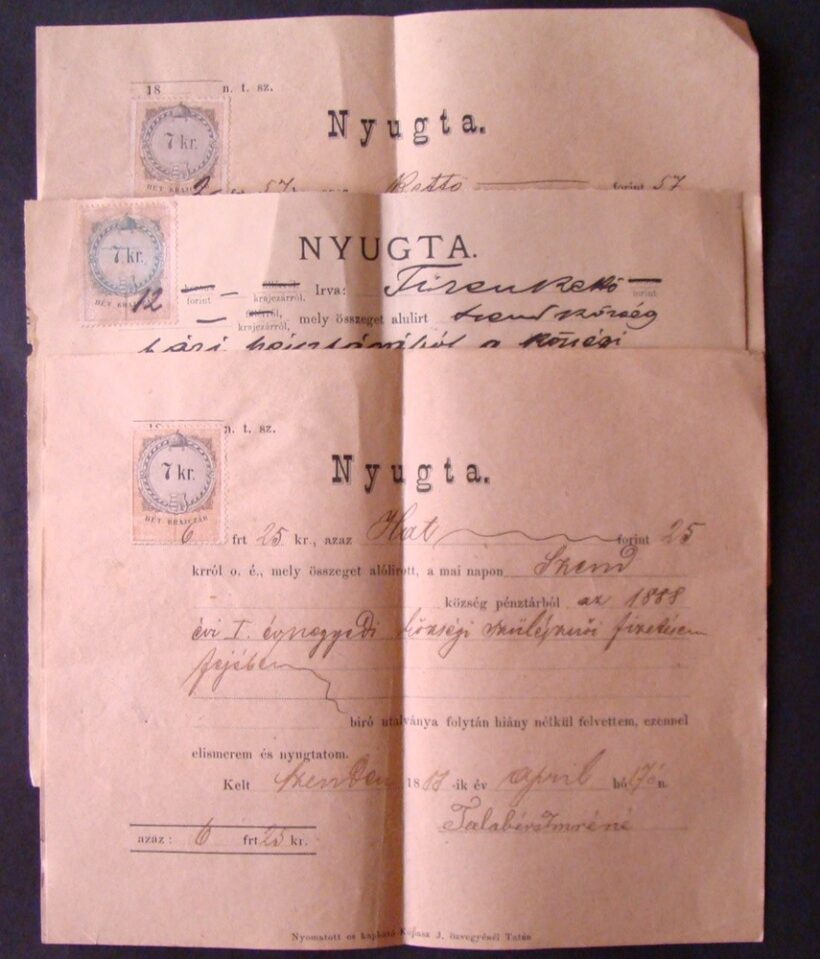 18 n. t. sz.
Nyugta.
7 kr.
HÉT KRAJCZÁR
2 frt 57 kr., azaz Kettő forint 57
NYUGTA.
7 kr.
HÉT KRAJCZÁR
12 forint krajczárról. Irva: Tizenkettő forint
krajczárról, mely összeget alulirt Szend község
házi pénztárából a községi
n. t. sz.
7 kr.
HÉT KRAJCZÁR
Nyugta.
6 frt 25 kr., azaz Hat forint 25
krról o. é., mely összeget alólirott, a mai napon Szend
község pénztárból az 1888
évi I. évnegyedi községi szülésznői fizetésem
fejében
biró utalványa folytán hiány nélkül felvettem, ezennel
elismerem és nyugtatom.
Kelt Szenden 1888-ik év april hó 17én.
Talabér Imréné
azaz: 6 frt 25 kr.
Nyomatott és kapható Kopasz J. özvegyénél Tatán